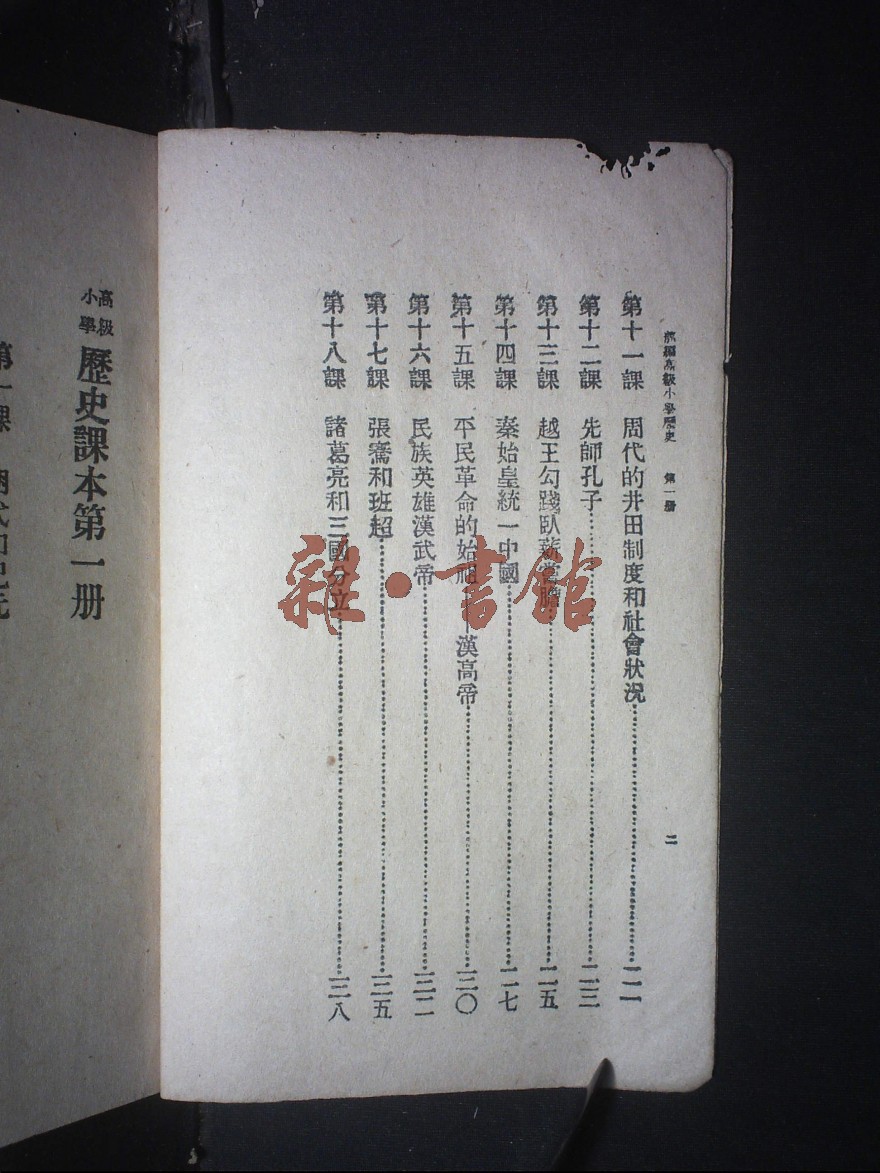 部編高級小學歷史 第一册 二
第十一課 周代的井田制度和社會狀况……二一
第十二課 先師孔子……二三
第十三課 越王勾踐臥薪嘗膽……二五
第十四課 秦始皇統一中國……二七
第十五課 平民革命的始祖——漢高帝……三〇
第十六課 民族英雄漢武帝……三二
第十七課 張騫和班超……三五
第十八課 諸葛亮和三國分立……三八
高級小學 歷史課本第一册
第一課
雜·書館